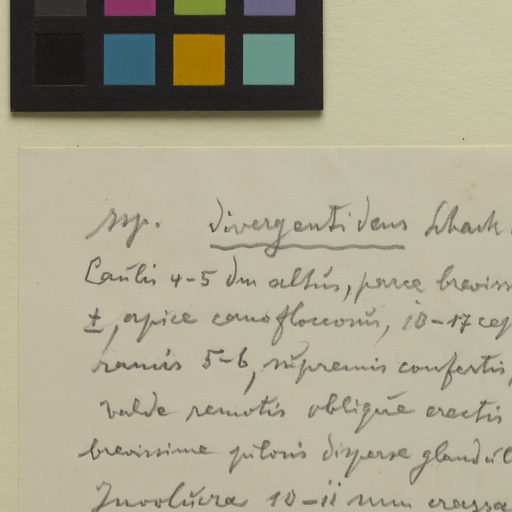 ssp. divergentidens Schack
Caulis 4-5 dm altus, parce breviss
±, apice canofloccosus, 10-17 cep
ramis 5-6, supremis confertis,
valde remotis oblique erectis
brevissime pilosis disperse glandul
Involucra 10-11 mm crassa